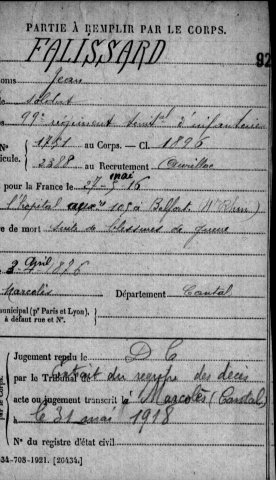 PARTIE À REMPLIR PAR LE CORPS.
FALISSARD 92
oms Jean
soldat
99e régiment terrial d'infanterie
N° 1751 au Corps. — Cl. 1896
icule. 2388 au Recrutement Aurillac
pour la France le 27 mai 16
l'hôpital auxre 105 à Belfort (Ht Rhin)
re de mort suite de blessures de guerre
3 Avril 1876
Marcolès Département Cantal
unicipal (pr Paris et Lyon),
à défaut rue et N°.
Jugement rendu le D C
par le Tribunal extrait du registre des décès
acte ou jugement transcrit à Marcolès (Cantal)
le 31 mai 1918
N° du registre d'état civil
34-708-1921. [26434.]
par le Corps.